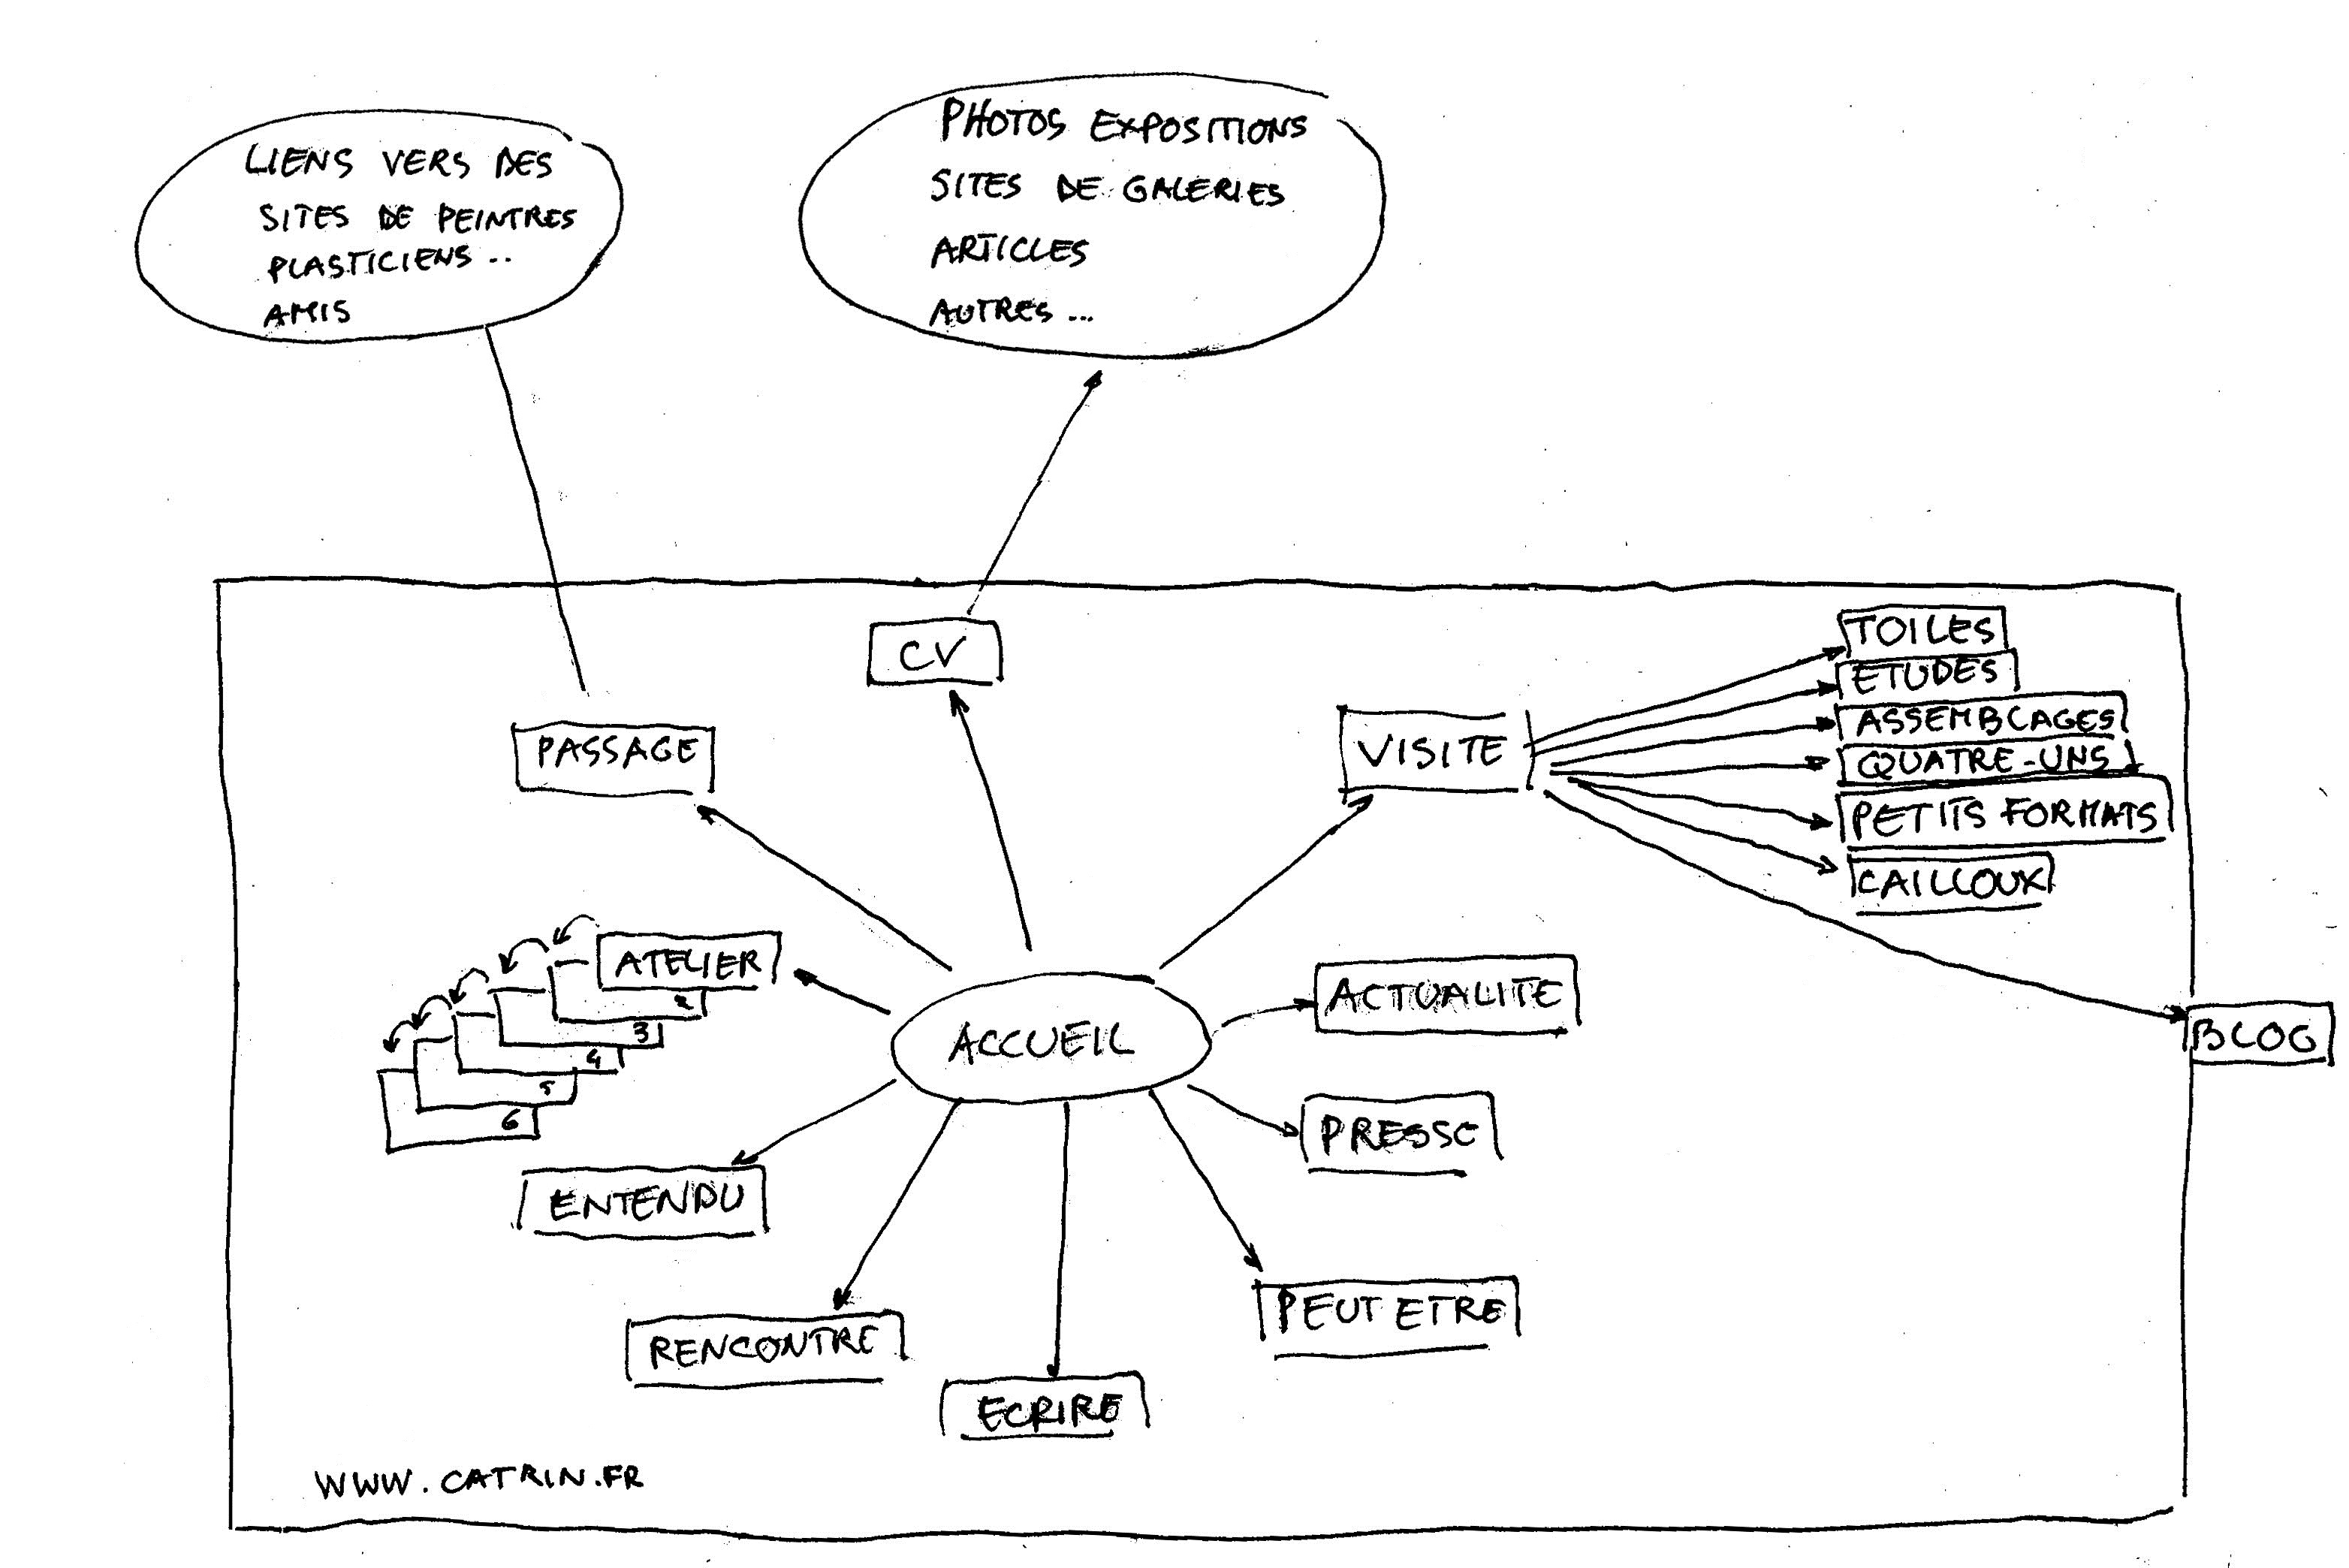 LIENS VERS DES
SITES DE PEINTRES
PLASTICIENS ..
AMIS
PHOTOS EXPOSITIONS
SITES DE GALERIES
ARTICLES
AUTRES ...
CV
PASSAGE
VISITE
TOILES
ETUDES
ASSEMBLAGES
QUATRE-UNS
PETITS FORMATS
CAILLOUX
ATELIER
2
3
4
5
6
ACCUEIL
ACTUALITE
BLOG
PRESSE
ENTENDU
RENCONTRE
ECRIRE
PEUT ETRE
WWW.CATRIN.FR